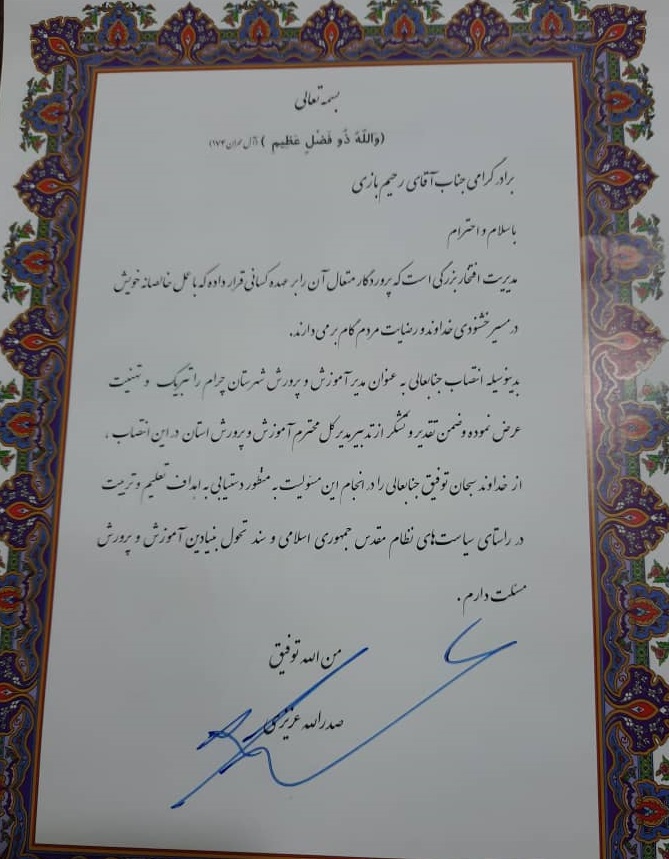 بسمه تعالی
(وَاللَّهُ ذُو فَضْلٍ عَظِیمٍ) (آل عمران ۱۷۴)
برادر گرامی جناب آقای رحیم بازی
باسلام و احترام
مدیریت افتخار بزرگی است که پروردگار متعال آن را بر عهده کسانی قرار داده که با عمل خالصانه خویش
در مسیر خشنودی خداوند و رضایت مردم گام برمی دارند.
بدینوسیله انتصاب جنابعالی به عنوان مدیر آموزش و پرورش شهرستان چرام را تبریک و تهنیت
عرض نموده و ضمن تقدیر و تشکر از تدبیر مدیر کل محترم آموزش و پرورش استان در این انتصاب ،
از خداوند سبحان توفیق جنابعالی را در انجام این مسئولیت به منظور دستیابی به اهداف تعلیم و تربیت
در راستای سیاست های نظام مقدس جمهوری اسلامی و سند تحول بنیادین آموزش و پرورش
مسئلت دارم .
من الله توفیق
صدرالله عزیزی